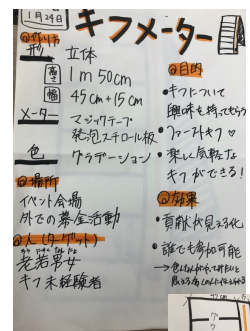 1月24日
キフメーター
◎作り方
形 立体
高さ 1m 50cm
幅 45cm+15cm
メーター マジックテープ
発泡スチロール板
色 グラデーション
◎場所
イベント会場
外での募金活動
◎人(ターゲット)
老若男女
キフ未経験者
◎目的
・キフについて
興味を持ってもらう
・ファーストキフ♡
・楽しく気軽な
キフができる!
◎効果
・貢献が見える化
・誰でも参加可能